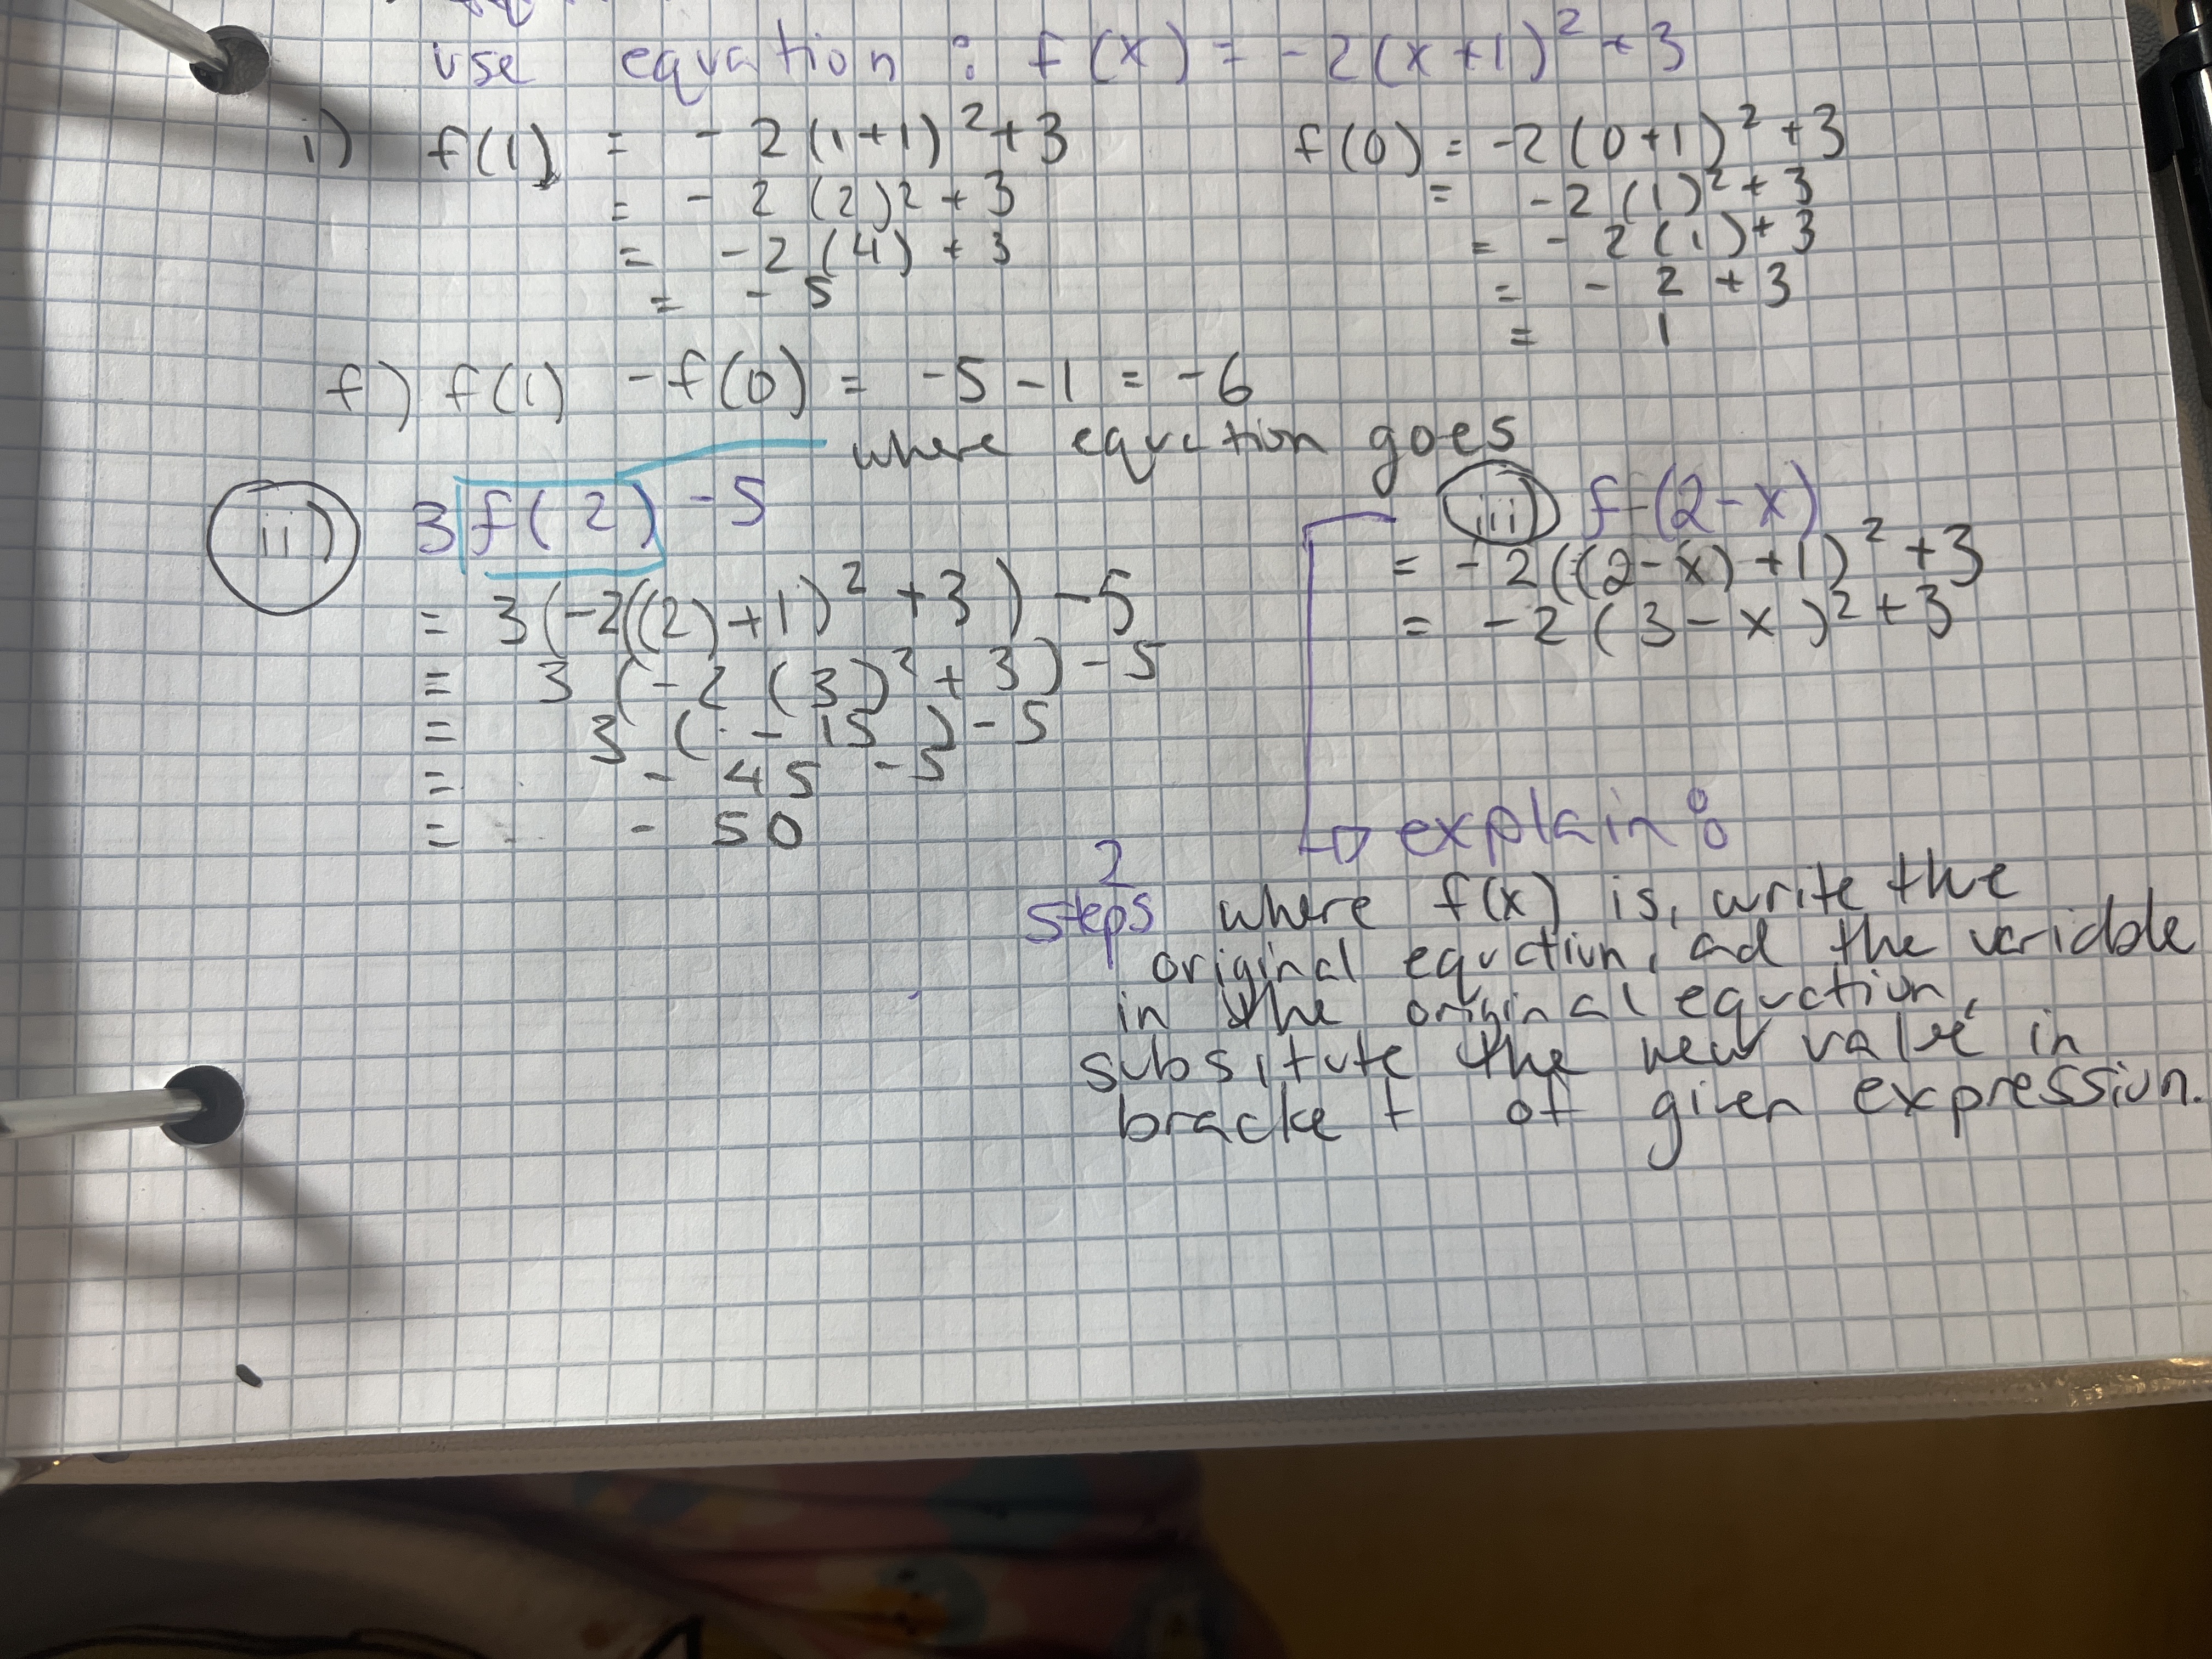 use equation : f(x) = -2(x+1)² + 3
i) f(1) = - 2(1+1)² + 3
= - 2 (2)² + 3
= - 2 (4) + 3
= - 5
f(0) = -2(0+1)² + 3
= -2(1)² + 3
= - 2(1) + 3
= - 2 + 3
= 1
f) f(1) - f(0) = -5 - 1 = -6
where equation goes
ii) 3f(2) - 5
= 3(-2((2)+1)² + 3) - 5
= 3(-2(3)² + 3) - 5
= 3(-15) - 5
= - 45 - 5
= - 50
iii) f(2-x)
= -2((2-x)+1)² + 3
= -2(3-x)² + 3
explain :
2
steps where f(x) is, write the
original equation, ad the variable
in the original equation,
subsitute the new value in
bracket of given expression.